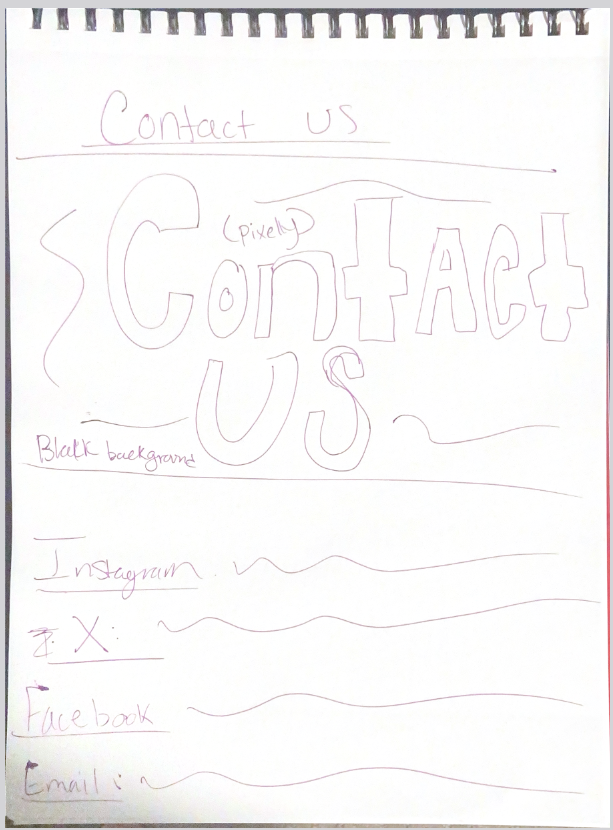 Contact us
(pixely)
Contact
us
Black background
Instagram.
X:
Facebook
Email: